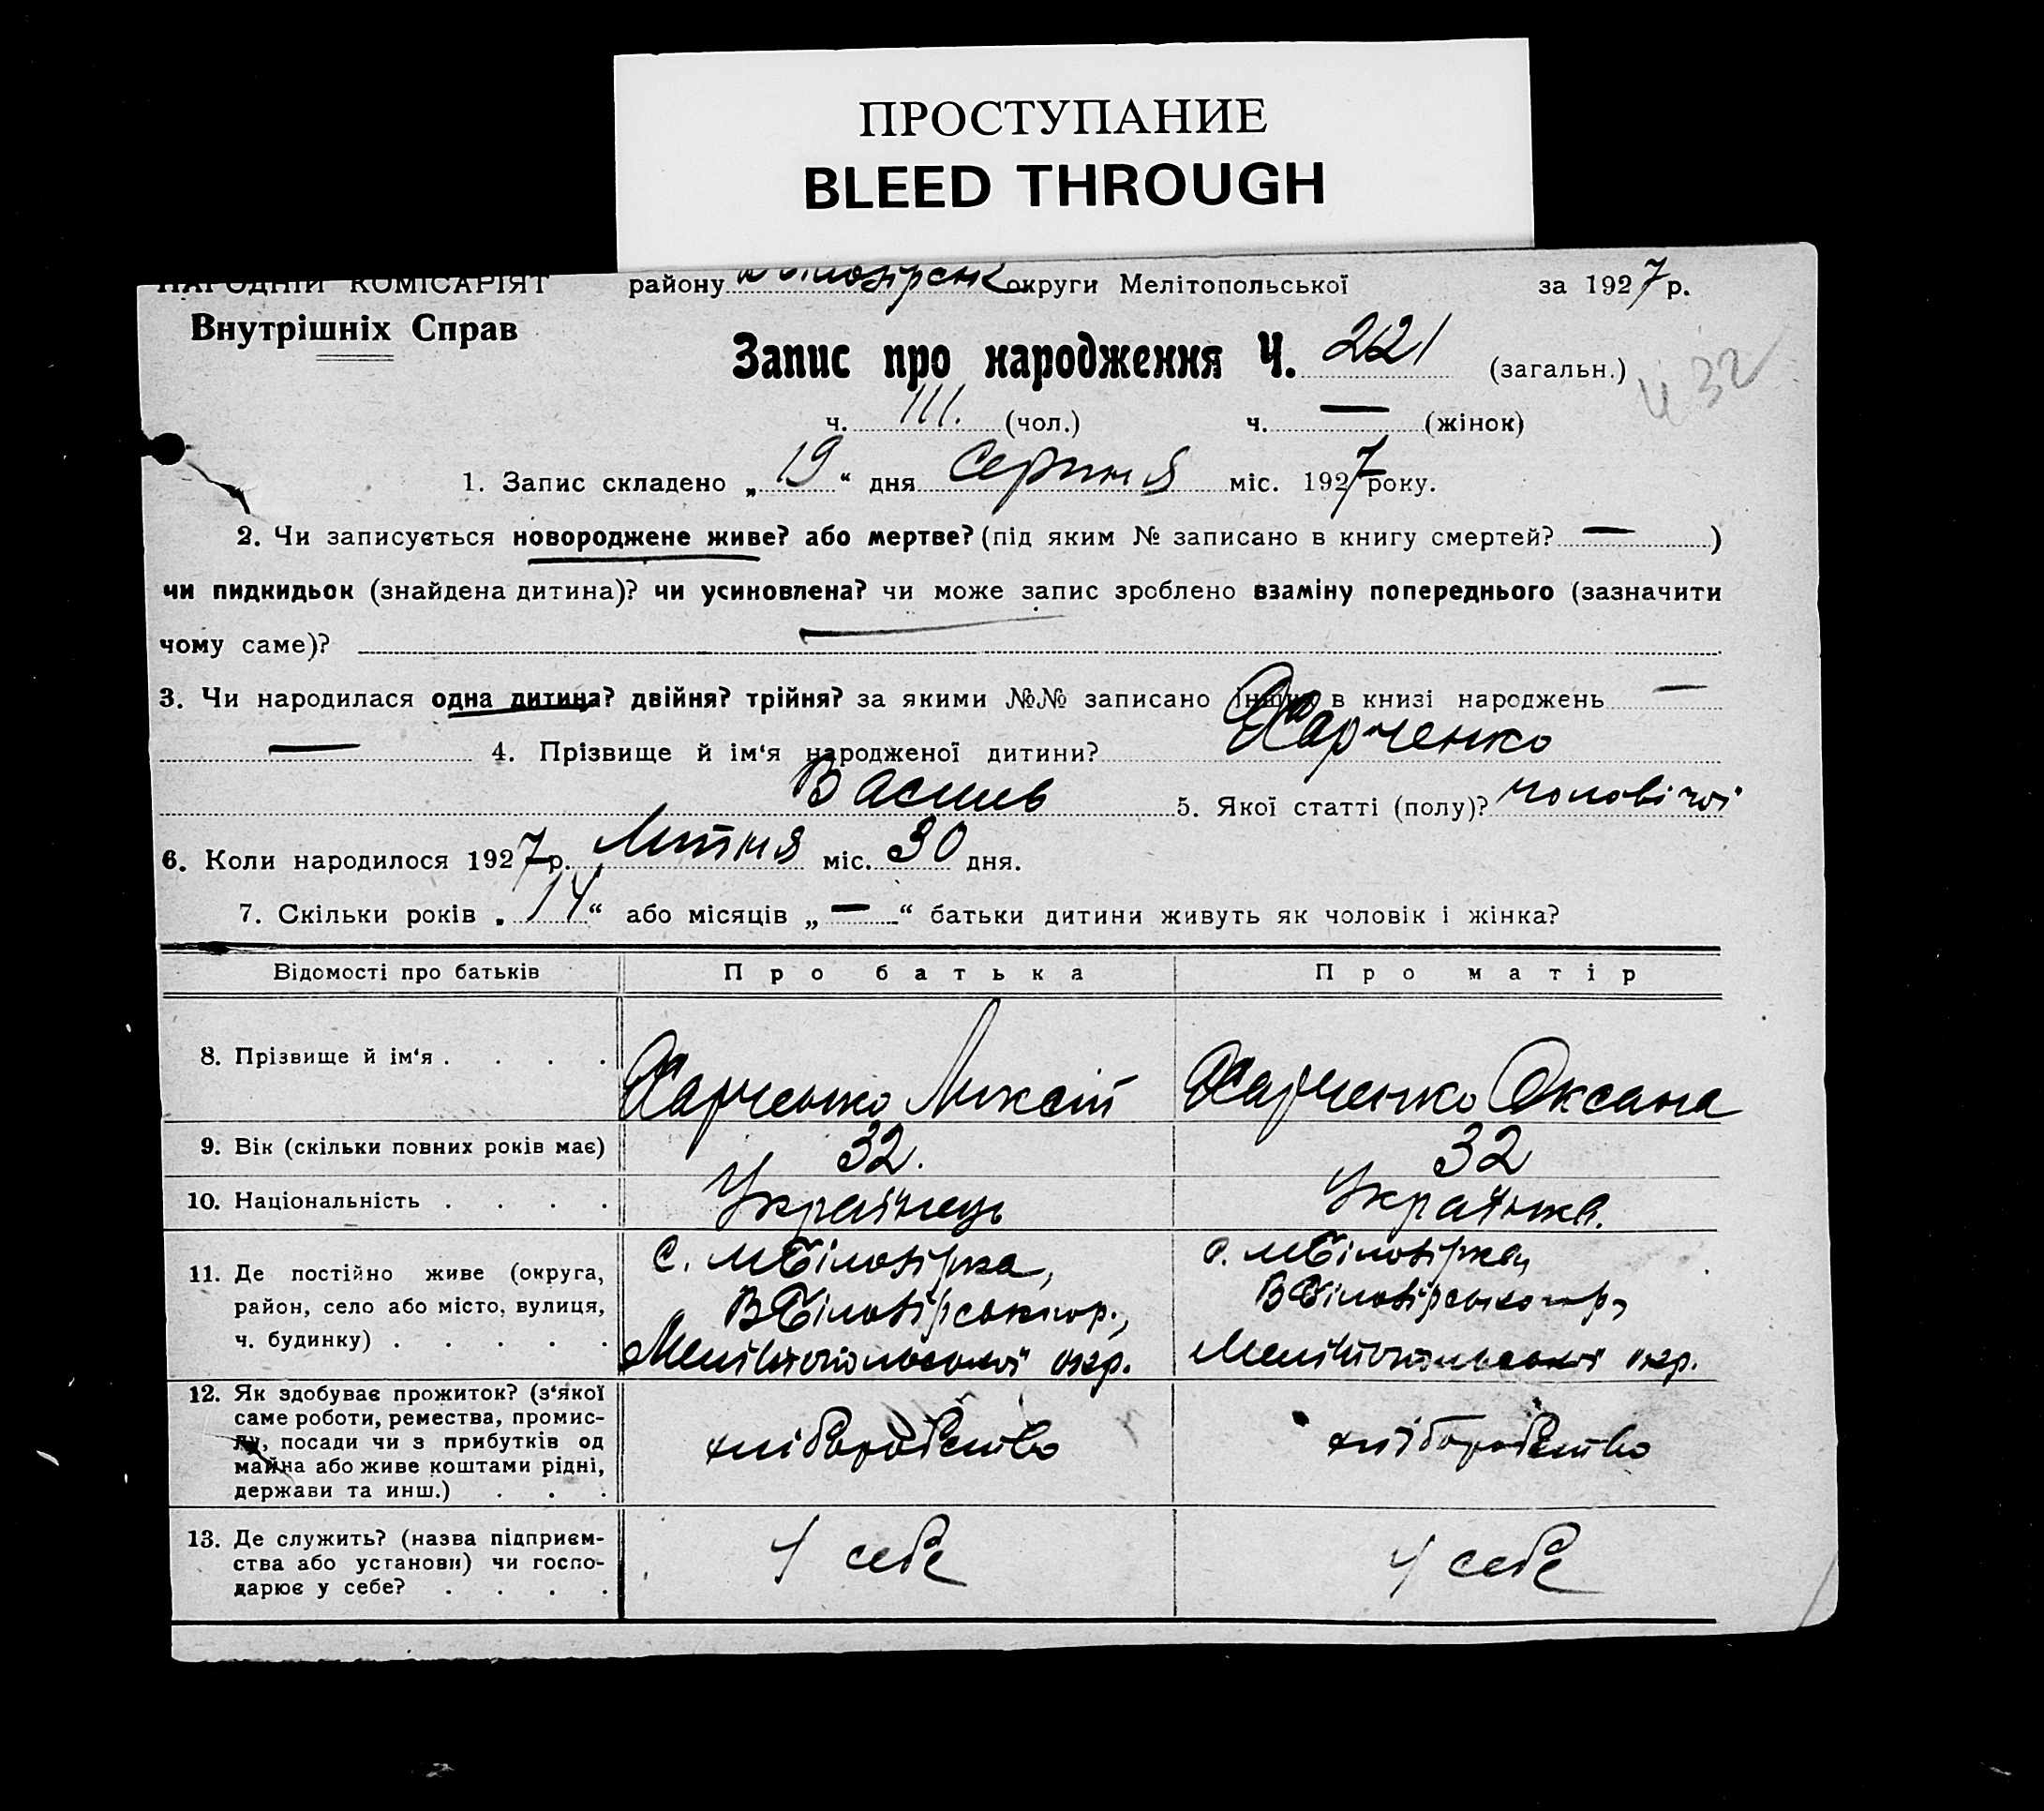 ПРОСТУПАНИЕ
BLEED THROUGH
НАРОДНІЙ КОМІСАРІЯТ району округи Мелітопольської за 1927 р.
Внутрішніх Справ
Запис про народження Ч. 221 (загальн.)
ч. 111. (чол.) ч. — (жінок)
1. Запис складено „ 19 “ дня Серпня міс. 1927 року.
2. Чи записується новороджене живе? або мертве? (під яким № записано в книгу смертей? — )
чи пидкидьок (знайдена дитина)? чи усиновлена? чи може запис зроблено взаміну попереднього (зазначити
чому саме)? —
3. Чи народилася одна дитина? двійня? трійня? за якими №№ записано інших в книзі народжень —
— 4. Прізвище й ім‘я народженої дитини? Харченко
Василь 5. Якої статті (полу)? чоловічої
6. Коли народилося 1927 р. Липня міс. 30 дня.
7. Скільки років „ 14 “ або місяців „ — “ батьки дитини живуть як чоловік і жінка?
Відомості про батьків Про батька Про матір
8. Прізвище й ім‘я . . . . Харченко Харченко Оксана
9. Вік (скільки повних років має) 32. 32
10. Національність . . . . Українець Українка.
11. Де постійно живе (округа, с. МБілозірка, с. МБілозірка,
район, село або місто, вулиця, ВБілозірського р., ВБілозірського р,
ч. будинку) . . . . . Мелітопольської окр. Мелітопольської окр.
12. Як здобуває прожиток? (з‘якої
саме роботи, ремества, промис-
лу, посади чи з прибутків од хліборобство хліборобство
майна або живе коштами рідні,
держави та инш.) . . .
13. Де служить? (назва підприєм-
ства або установи) чи госпо- У себе У себе
дарює у себе? . . . .